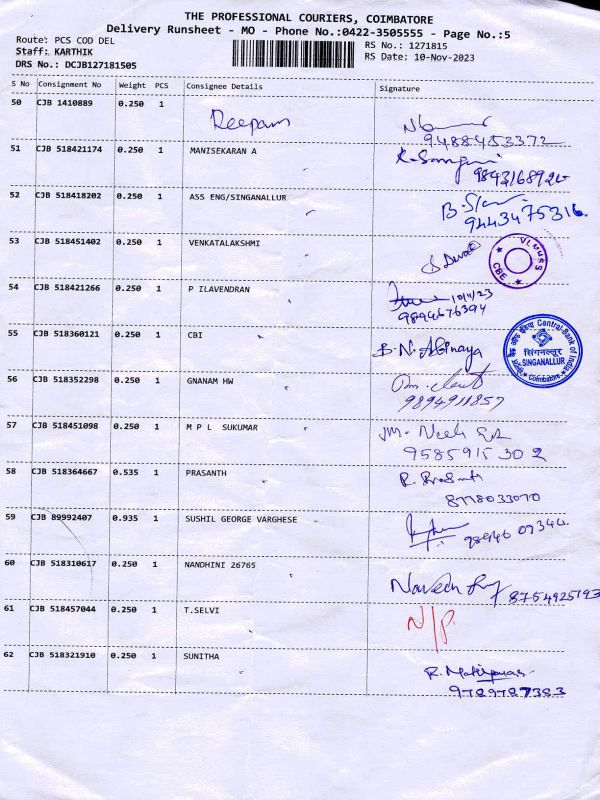 THE PROFESSIONAL COURIERS, COIMBATORE
Delivery Runsheet - MO - Phone No.:0422-3505555 - Page No.:5
Route: PCS COD DEL
Staff: KARTHIK
DRS No.: DCJB127181505
RS No.: 1271815
RS Date: 10-Nov-2023
S No Consignment No Weight PCS Consignee Details Signature
50 CJB 1410889 0.250 1 Deepam
9488453372
51 CJB 518421174 0.250 1 MANISEKARAN A
9843168920
52 CJB 518418202 0.250 1 ASS ENG/SINGANALLUR
9443475316
53 CJB 518451402 0.250 1 VENKATALAKSHMI
CBE
54 CJB 518421266 0.250 1 P ILAVENDRAN 10/11/23
9894676394
55 CJB 518360121 0.250 1 CBI B.N. Abinaya
Central Bank of India
सिंगनल्लूर
SINGANALLUR
Coimbatore
56 CJB 518352298 0.250 1 GNANAM HW
9894911857
57 CJB 518451098 0.250 1 M P L SUKUMAR
9585915302
58 CJB 518364667 0.535 1 PRASANTH R. Prasanth
8778033070
59 CJB 89992407 0.935 1 SUSHIL GEORGE VARGHESE
60 CJB 518310617 0.250 1 NANDHINI 26765
Naveen 8754925793
61 CJB 518457044 0.250 1 T.SELVI N/P.
62 CJB 518321910 0.250 1 SUNITHA
9789787383